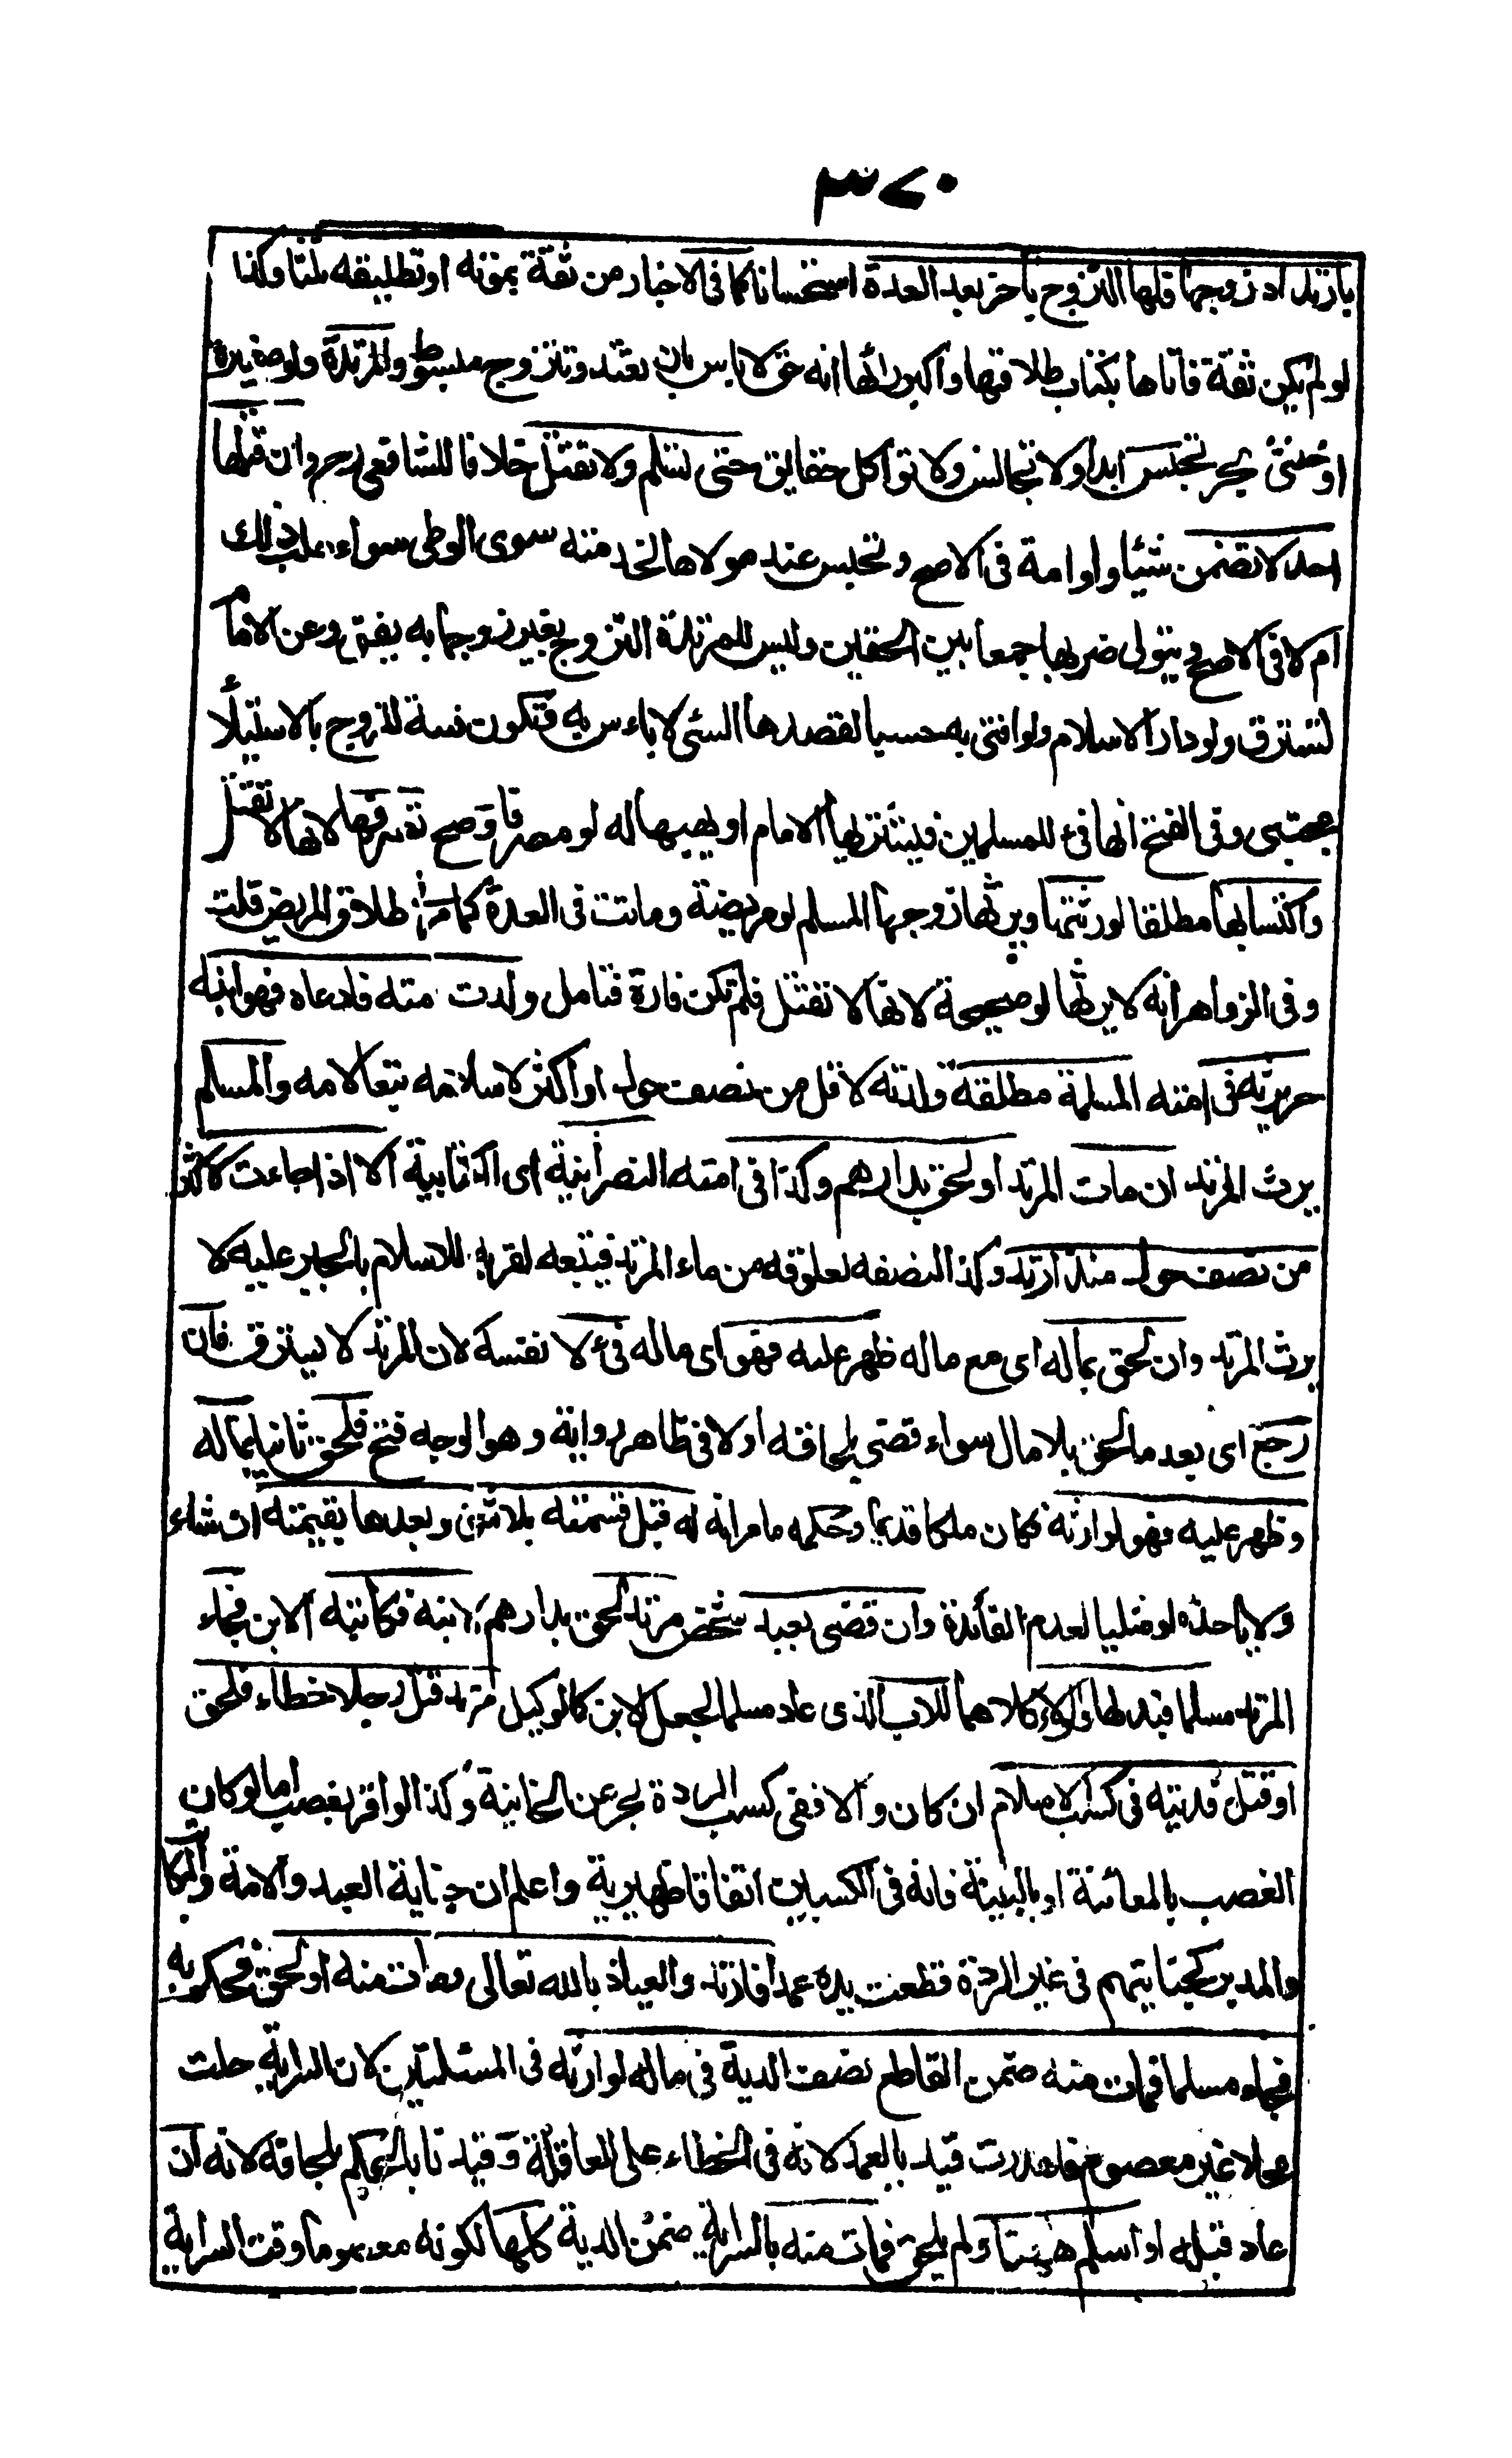 ٣٧٠
بارتداد زوجها فلها التزوج باخر بعد العدة استحسانا كما فى الاخبار من ثقة بموته او تطليقه ثلثا وكذا
لو لم يكن ثقة فاتاها بكتاب طلاقها واكبر رائها انه حق لا باس بان تعتد وتتزوج مبسوط والمرتدة ولو صغيرة
او خنثى بحر تحبس ابدا ولا تجالس ولا تواكل حقايق حتى تسلم ولا تقتل خلافا للشافعى رحم وان قتلها
احد لا تضمن شيئا ولو امة فى الاصح وتحبس عند مولاها لخدمته سوى الوطى سواء طلب ذلك
ام لا فى الاصح ويتولى ضربها جمعا بين الحقين وليس للمرتدة التزوج بغير زوجها به يفتى وعن الاما
تسترق ولو دار الاسلام ولو افتى به حسما لقصدها السئ لا باءس به فتكون قنة للزوج بالاستيلأ
مجتبى وفى الفتح انها فئ للمسلمين فيشتريها الامام او يهبها له لو مصرفا وصح تصرفها لانها لا تقتل
واكتسابها مطلقا لورثتها ويرثها زوجها المسلم لو مريضة وماتت فى العدة كما مر فى طلاق المريض قلت
وفى الزواهر انه لا يرثها لو صحيحة لانها لا تقتل فلم تكن فارة فتامل ولدت منه فادعاه فهو ابنه
حر يرثه فى امته المسلمة مطلقه ولدته لاقل من نصف حول او اكثر لاسلامه تبعا لامه والمسلم
يرث المرتد ان مات المرتد او لحق بدارهم وكذا فى امته النصرانية اى الكتابية الا اذا جاءت لاكثر
من نصف حول منذ ارتد وكذا النصفه لعلوقه من ماء المرتد فيتبعه لقربه للاسلام بالجبر عليه لا
يرث المرتد وان لحق بماله اى مع ماله ظهر عليه فهو اى ماله فئ لا نفسه لان المرتد لا يسترق فان
رجع اى بعد ما لحق بلا مال سواء قضى بلحاقه او لا فى ظاهر رواية وهو الوجه فتح فلحق ثانيا بماله
وظهر عليه فهو لوارثه فكان ملكا قديما وحكمه ما مر انه له قبل قسمته بلا ثمن وبعدها بقيمته ان شاء
ولا ياخذه لو مثليا لعدم الفائدة وان قضى بعبد شخص مرتد لحق بدارهم لابنه فكاتبه الابن فجاء
المرتد مسلما فبدلها والولاء كلاهما للاب الذى عاد مسلما لجعل الابن كالوكيل مرتد قتل رجلا خطاء فلحق
او قتل فديته فى كسب الاسلام ان كان والا ففى كسب الردة بحر عن الخانية وكذا لو اقر بغصب اما لو كان
الغصب بالمعائنة او بالبينة فانه فى الكسبين اتفاقا ظهيرية واعلم ان جناية العبد والامة والمكاتب
والمدبر كجنايتهم فى غير الردة قطعت يده عمدا فارتد والعياذ بالله تعالى ومات منه او لحق فحكم به
فجاء مسلما فمات منه ضمن القاطع نصف الدية فى ماله لوارثه فى المسئلتين لان السراية حلت
محلا غير معصوم فاهدرت قيد بالعمد لانه فى الخطاء على العاقلة وقيدنا بالحكم بلحاقه لانه ان
عاد قبله او اسلم ههنا ولم يلحق فمات منه بالسراية ضمن الدية كلها لكونه معصوما وقت السراية